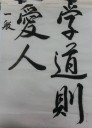 学道則
愛人
一般